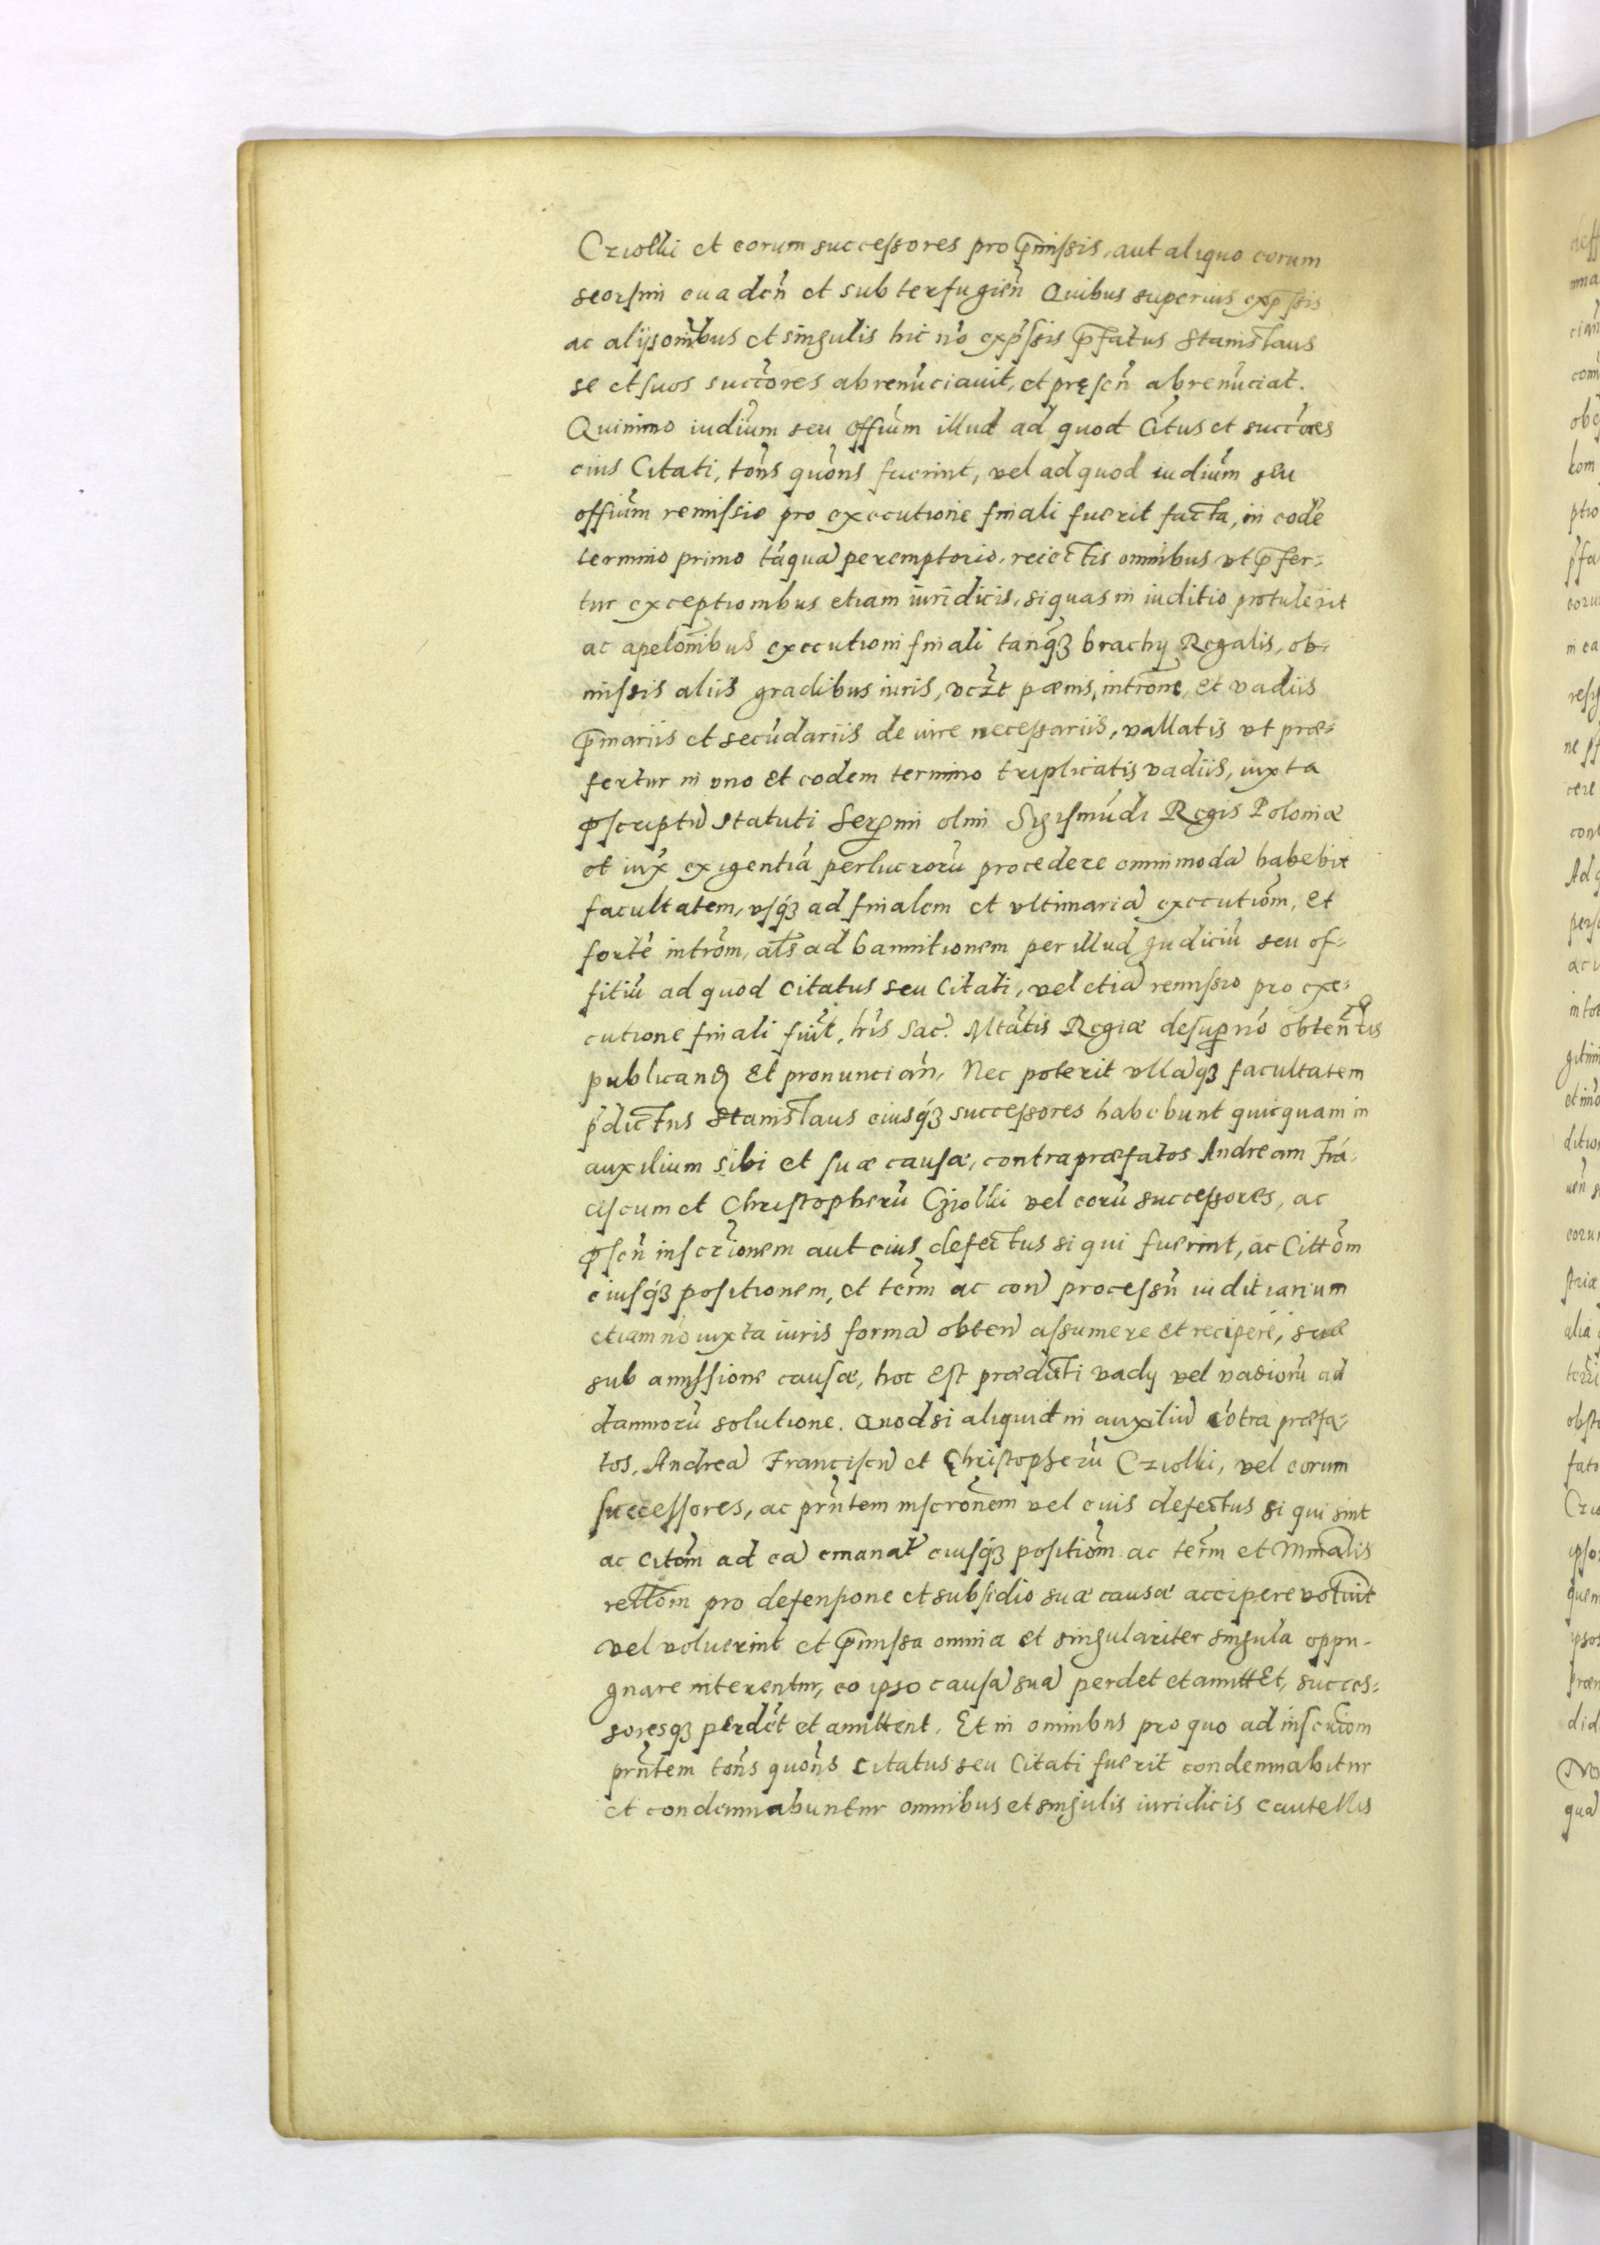 Cziolki et eorum successores pro p̄missis, aut aliquo eorum
seorsim euaden̄ et subterfugien̄ Quibus superius exp̄ssis
ac alijs om̄ibus et singulis hic nō exp̄ssis p̄fatus Stanislaus
se et suos succōres abrenūciauit, et pręsen̄ abrenūciat.
Quinimo iudiūm seu offiūm illud ad quod Citus et succōres
eius Citati, tōns quōns fuerint, vel ad quod iudiūm seu
offiūm remissio pro executione finali fuerit facta, in eodē
termino primo tāquā peremptorio, reiectis omnibus vt p̄fer-
tur exceptionibus etiam iuridicis, si quas in iuditio protulerit
ac apelōnibus executioni finali tanq̄ȝ brachij Regalis, ob-
missis aliis gradibus iuris, vczt pœnis, intrōne, et vadiis
p̄mariis et secūdariis de iure necessariis, vallatis vt præ-
fertur in vno et eodem termino triplicatis vadiis, iuxta
p̄scriptū statuti Ser̄mi olim Sigismūdi Regis Poloniæ
et iux̄ exigentiā perlucrorū procedere omnimodā habebit
facultatem, vsq́ȝ ad finalem et vltimariā executiōm, et
fortē intrōm, al̄s ad bannitionem per illud Iudiciū seu of-
fitiū ad quod citatus seu Citati, vel etiā remissio pro exe-
cutione finali fiūt, lrīs Sac. Mtātis Regiæ desup nō obtentis
publicand̄ et pronuncian̄, Nec poterit vllāqȝ facultatem
p̄dictus Stanislaus eiusq́ȝ successores habebunt quicquam in
auxilium sibi et suæ causæ, contra præfatos Andream Frā-
ciscum et Christopherū Cziolki vel eorū successores, ac
p̄sen̄ inscrīonem aut eius defectus si qui fuerint, ac Cittōm
eiusq́ȝ positionem, et term̄ ac con̄ processū iuditiarium
etiam nō iuxta iuris formā obten̄ assumere et recipere, suæ
sub amissione causæ, hoc est prædicti vadij vel vadiorū ad
damnorū solutione. Quod si aliquid in auxiliū cōtra præfa-
tos, Andreā Franciscū et Christopherū Cziolki, vel eorum
successores, ac prn̄tem inscrōnem vel euis defectus si qui sint
ac citōm ad eā emanat̄ eiusq́ȝ positiōm ac term̄ et Mm̄alis
relt̄om pro defensione et subsidio suæ causæ accipere voluit
vel voluerint et p̄missa omnia et singulariter singula oppu-
gnare niterentur, eo ipso causā suā perdet et amittet, succes-
soresqȝ perdēt et amittent. Et in omnibus pro quo ad inscrīcom
prn̄tem tōns quōns citatus seu Citati fuerit condemnabitur
et condemnabuntur omnibus et singulis iuridicis cautellis